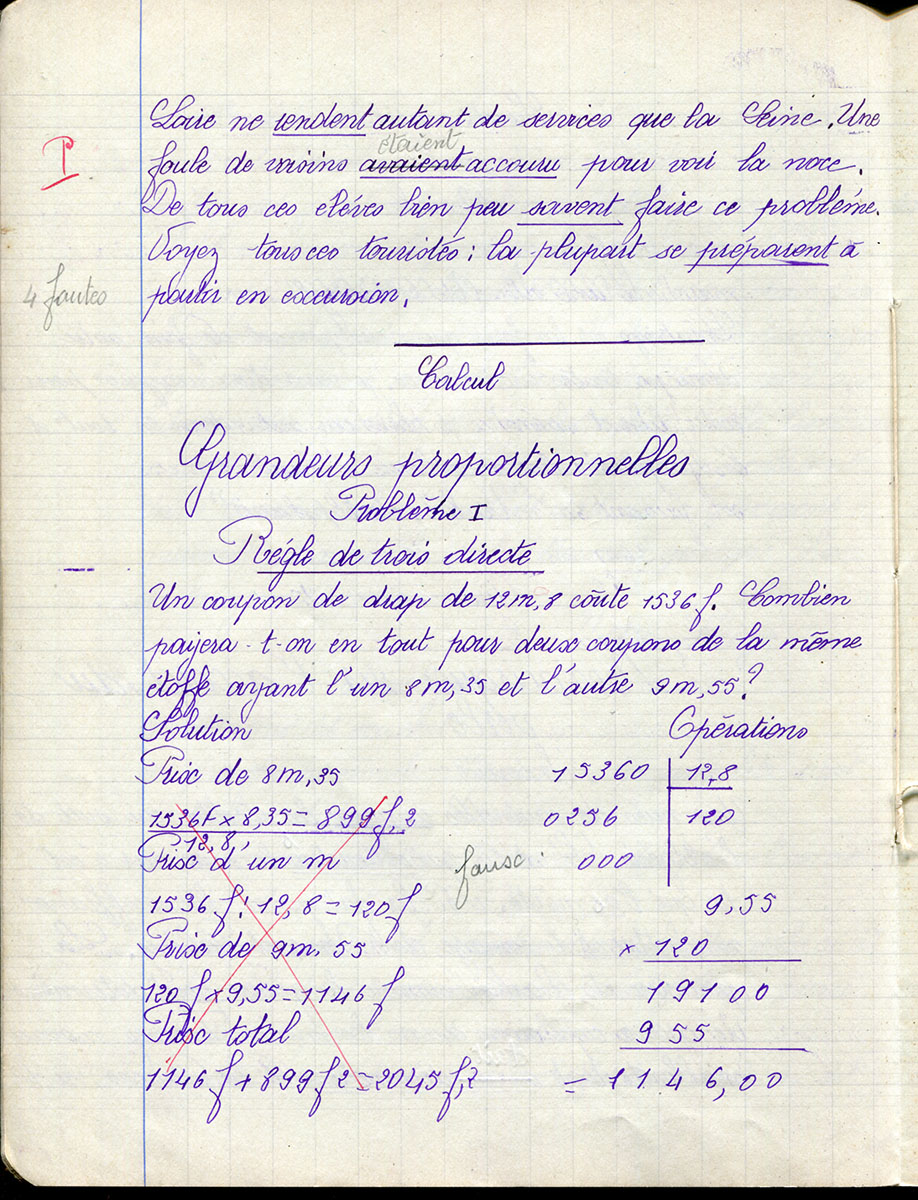 Loire ne rendent autant de services que la Seine. Une
étaient
foule de voisins avaient accouru pour voir la noce.
P
De tous ces eléves bien peu savent faire ce probléme.
Voyez tous ces touristes : la plupart se préparent à
4 fautes
partir en excursion.
Calcul
Grandeurs proportionnelles
Problème I
Régle de trois directe
Un coupon de drap de 12m,8 coûte 1536 f. Combien
payera-t-on en tout pour deux coupons de la même
étoffe ayant l'un 8m,35 et l'autre 9m,55 ?
Solution Opérations
Prix de 8m,35 15360 12,8
1536f x 8,35 = 899f,2 0256 120
12,8
Prix d'un m faux. 000
1536 f : 12,8 = 120 f 9,55
Prix de 9m.55 x 120
120 f x 9,55 = 1146 f 19100
Prix total 955
1146 f + 899 f 2 = 2045 f,2 = 1146,00